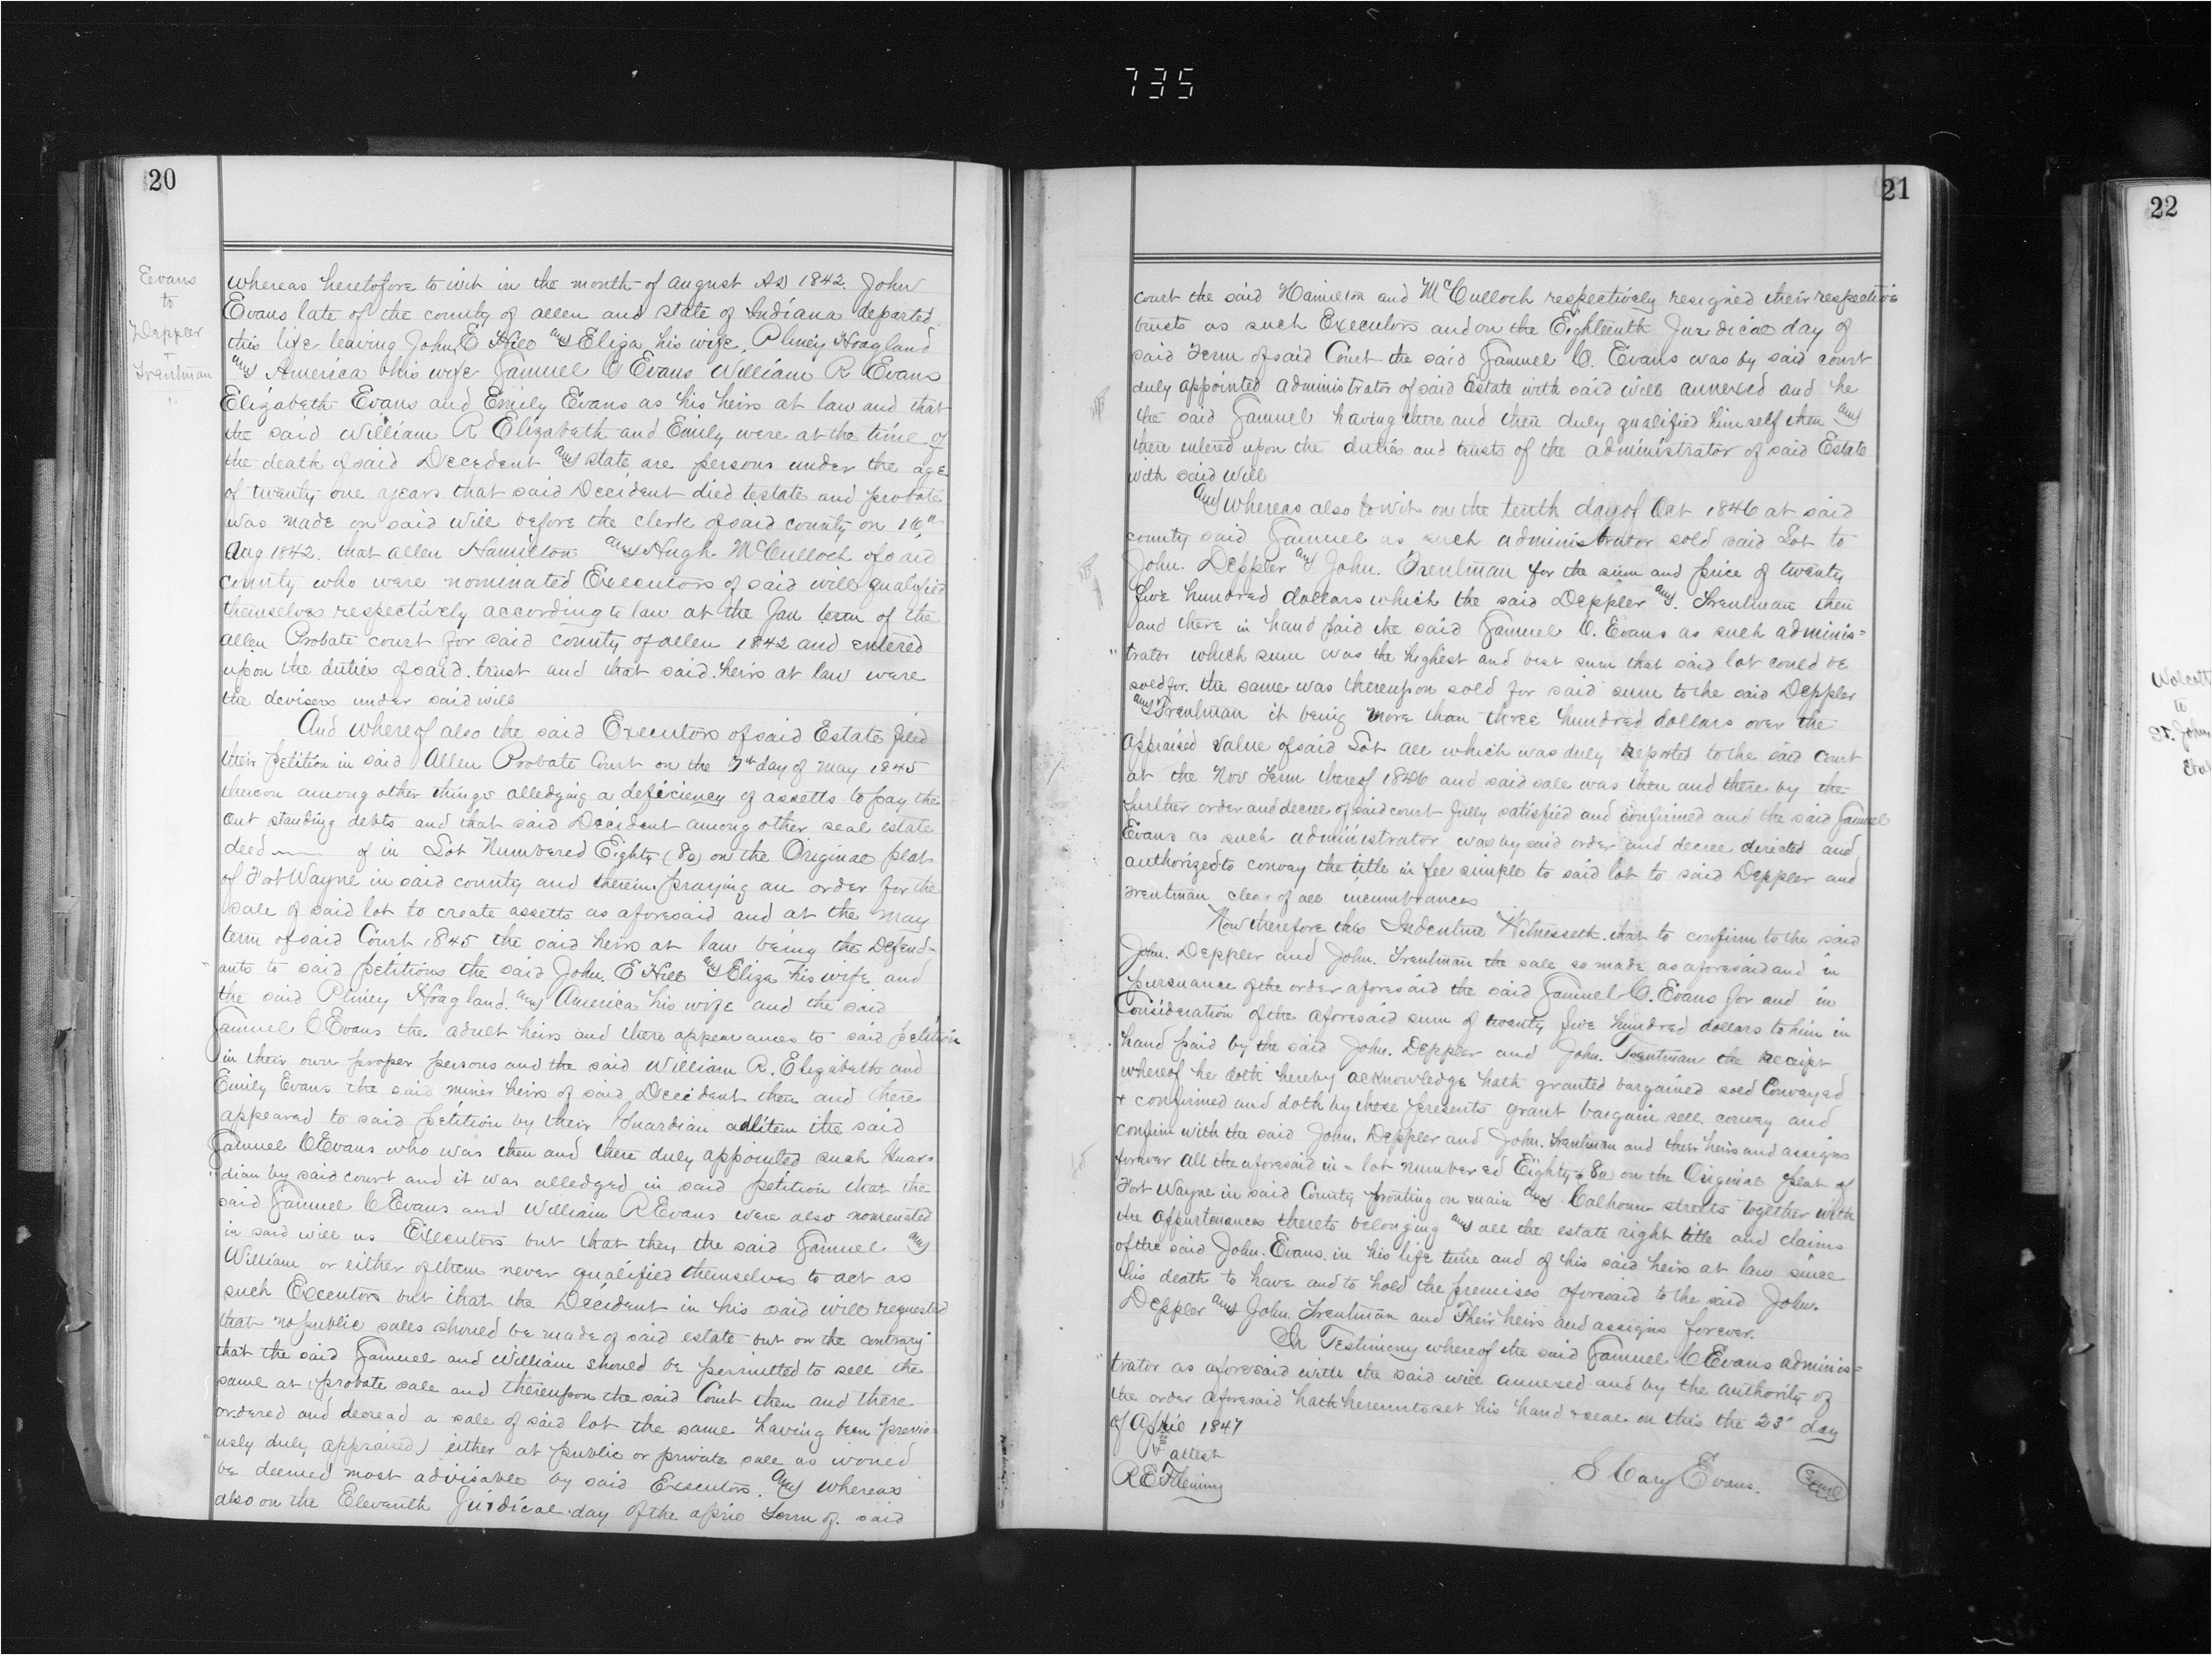 735
20
Evans
to
Deppler
+
Trentman
whereas heretofore to wit in the month of august AD 1842. John
Evans late of the county of allen and state of Indiana departed
this life leaving John E Hill and Eliza his wife. Pliney Hoagland
and America his wife Samuel C Evans William R Evans
Elizabeth Evans and Emily Evans as his heirs at law and that
the said William R Elizabeth and Emily were at the time of
the death of said Decedent and state are persons under the age
of twenty one years that said Decident died testate and probate
was made on said will before the clerk of said county on 16th
Aug 1842. that allen Hamilton and Hugh McCulloch of said
county who were nominated Executors of said will qualified
themselves respectively according to law at the Jan term of the
allen Probate court for said county of allen 1842 and entered
upon the duties of said trust and that said heirs at law were
the devisers under said will
And whereof also the said Executors of said Estate filed
their petition in said Allen Probate Court on the 7th day of may 1845
thereon among other things alledging a deficiency of assetts to pay the
out standing debts and that said Decident among other real estate
died of in Lot Numbered Eighty (80) on the Original plat
of Fort Wayne in said county and therein praying an order for the
sale of said lot to create assetts as aforesaid and at the may
term of said Court 1845 the said heirs at law being the Defend-
ants to said petitions the said John. E Hill and Eliza his wife and
the said Pliney Hoagland. and America his wife and the said
Samuel C Evans the adult heirs and there appearances to said petition
in their own proper persons and the said William R. Elizabeth and
Emily Evans the said miner heirs of said Decident then and there
appeared to said petition by their Guardian adlitem the said
Samuel C Evans who was then and there duly appointed such Guar=
dian by said court and it was alledged in said petition that the
said Samuel C Evans and William R Evans were also nomenated
in said will as Executors but that they the said Samuel and
William or either of them never qualified themselves to act as
such Executors but that the Decident in his said will requested
that no public sales should be made of said estate but on the contrary
that the said Samuel and William should be permitted to sell the
same at probate sale and thereupon the said Court then and there
ordered and decread a sale of said lot the same having been previo-
usly duly appraised) either at public or private sale as would
be deemed most advisable by said Executors. And whereas
also on the Eleventh Juridical day of the april Term of said
21
court the said Hamilton and McCulloch respectively resigned their respective
trusts as such Executors and on the Eighteenth Juridical day of
said Term of said Court the said Samuel C. Evans was by said court
duly appointed administrator of said Estate with said will annexed and he
the said Samuel having there and then duly qualified himself then and
there entered upon the duties and trusts of the administrator of said Estate
with said will
And whereas also to wit on the tenth day of Oct 1846 at said
county said Samuel as such administrator sold said Lot to
John. Deppler and John. Trentman for the sum and price of twenty
five hundred dollars which the said Deppler and. Trentman then
and there in hand paid the said Samuel C. Evans as such adminis=
trator which sum was the highest and best sum that said lot could be
sold for. the same was thereupon sold for said sum to the said Deppler
and Trentman it being more than three hundred dollars over the
appraised value of said Lot all which was duly Reported to the said Court
at the Nov Term thereof 1846 and said sale was then and there by the
further order and decree of said court fully satisfied and confirmed and the said Samuel
Evans as such administrator was by said order and decree directed and
authorized to convey the title in fee simple to said lot to said Deppler and
Trentman clear of all incumbrances
Now therefore this Indenture Witnesseth. that to confirm to the said
John. Deppler and John. Trentman the sale so made as aforesaid and in
pursuance of the order aforesaid the said Samuel C. Evans for and in
Consideration of the aforesaid sum of twenty five hundred dollars to him in
hand paid by the said John. Deppler and John. Trentman the Receipt
whereof he doth hereby acknowledge hath granted bargained sold Conveyed
+ confirmed and doth by these presents grant bargain sell. convey and
confirm with the said John. Deppler and John. Trentman and their heirs and assigns
forever all the aforesaid in-lot numbered Eighty (80) on the Original plat of
Fort Wayne in said County fronting on main and Calhoun streets together with
the appurtenances thereto belonging and all the estate right title and claims
of the said John. Evans. in his life time and of his said heirs at law since
his death to have and to hold the premises aforesaid to the said John.
Deppler and John. Trentman and Their heirs and assigns forever.
In Testimony whereof the said Samuel C Evans adminis=
trator as aforesaid with the said will annexed and by the authority of
the order aforesaid hath hereunto set his hand & seal on this the 23' day
of April 1847
attest
R E Fleming
S Cary Evans. Seal
22
Wolcott
to
St. John